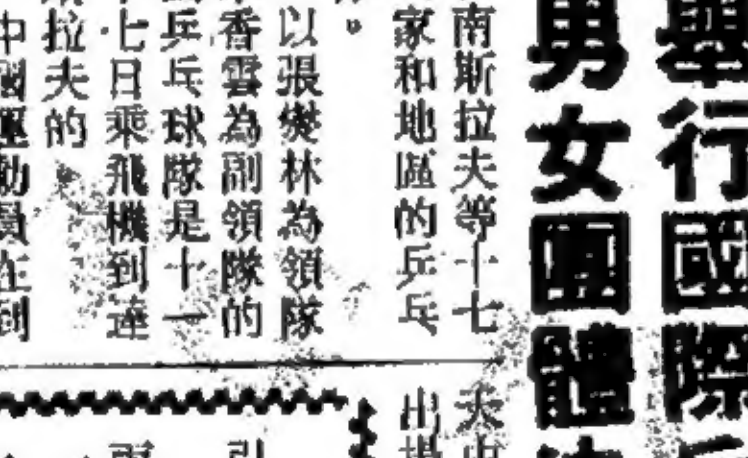 舉行國際
男女團體
南斯拉夫等十七
家和地區的乒乓
。
以張燮林為領隊
香雲為副領隊的
乒乓球隊是十一
七日乘飛機到達
拉夫的
中國運動員在到
出場
引